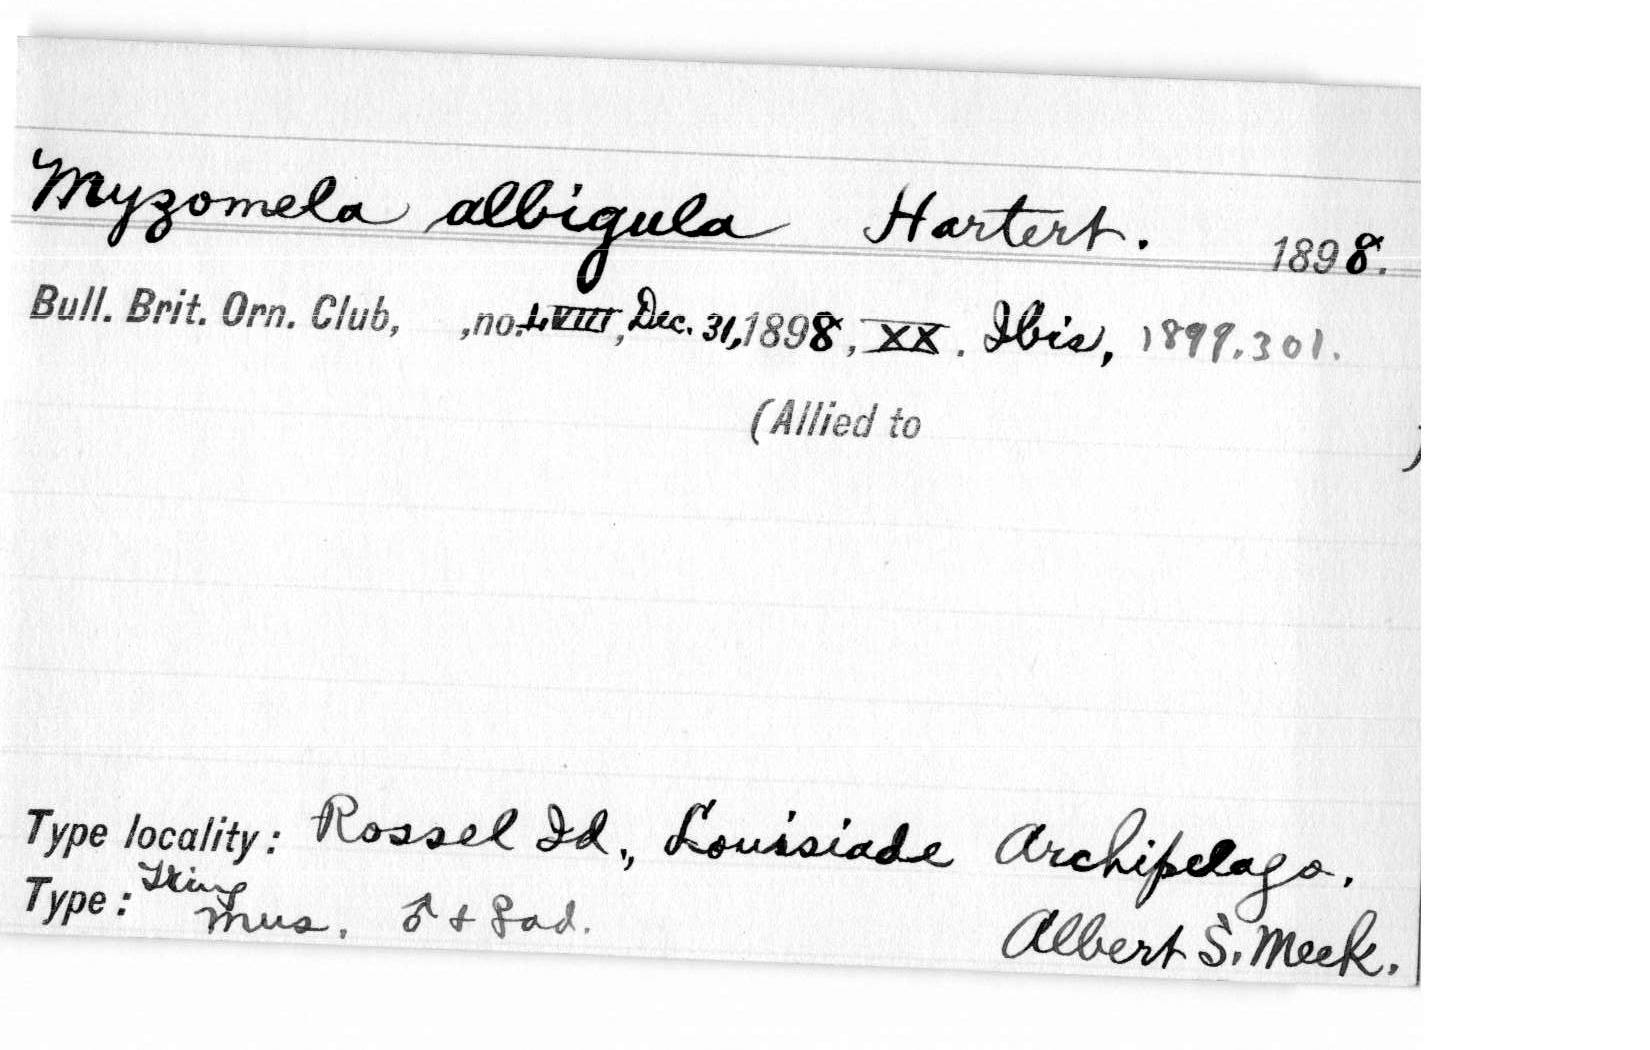 Myzomela albigula Hartert. 1898.
Bull. Brit. Orn. Club, ,no. LVIII, Dec. 31, 1898, XX. Ibis, 1899. 301.
(Allied to )
Type locality: Rossel Id., Louisiade Archipelago.
Type: Tring Mus. ♂ + ♀ ad. Albert S. Meek.